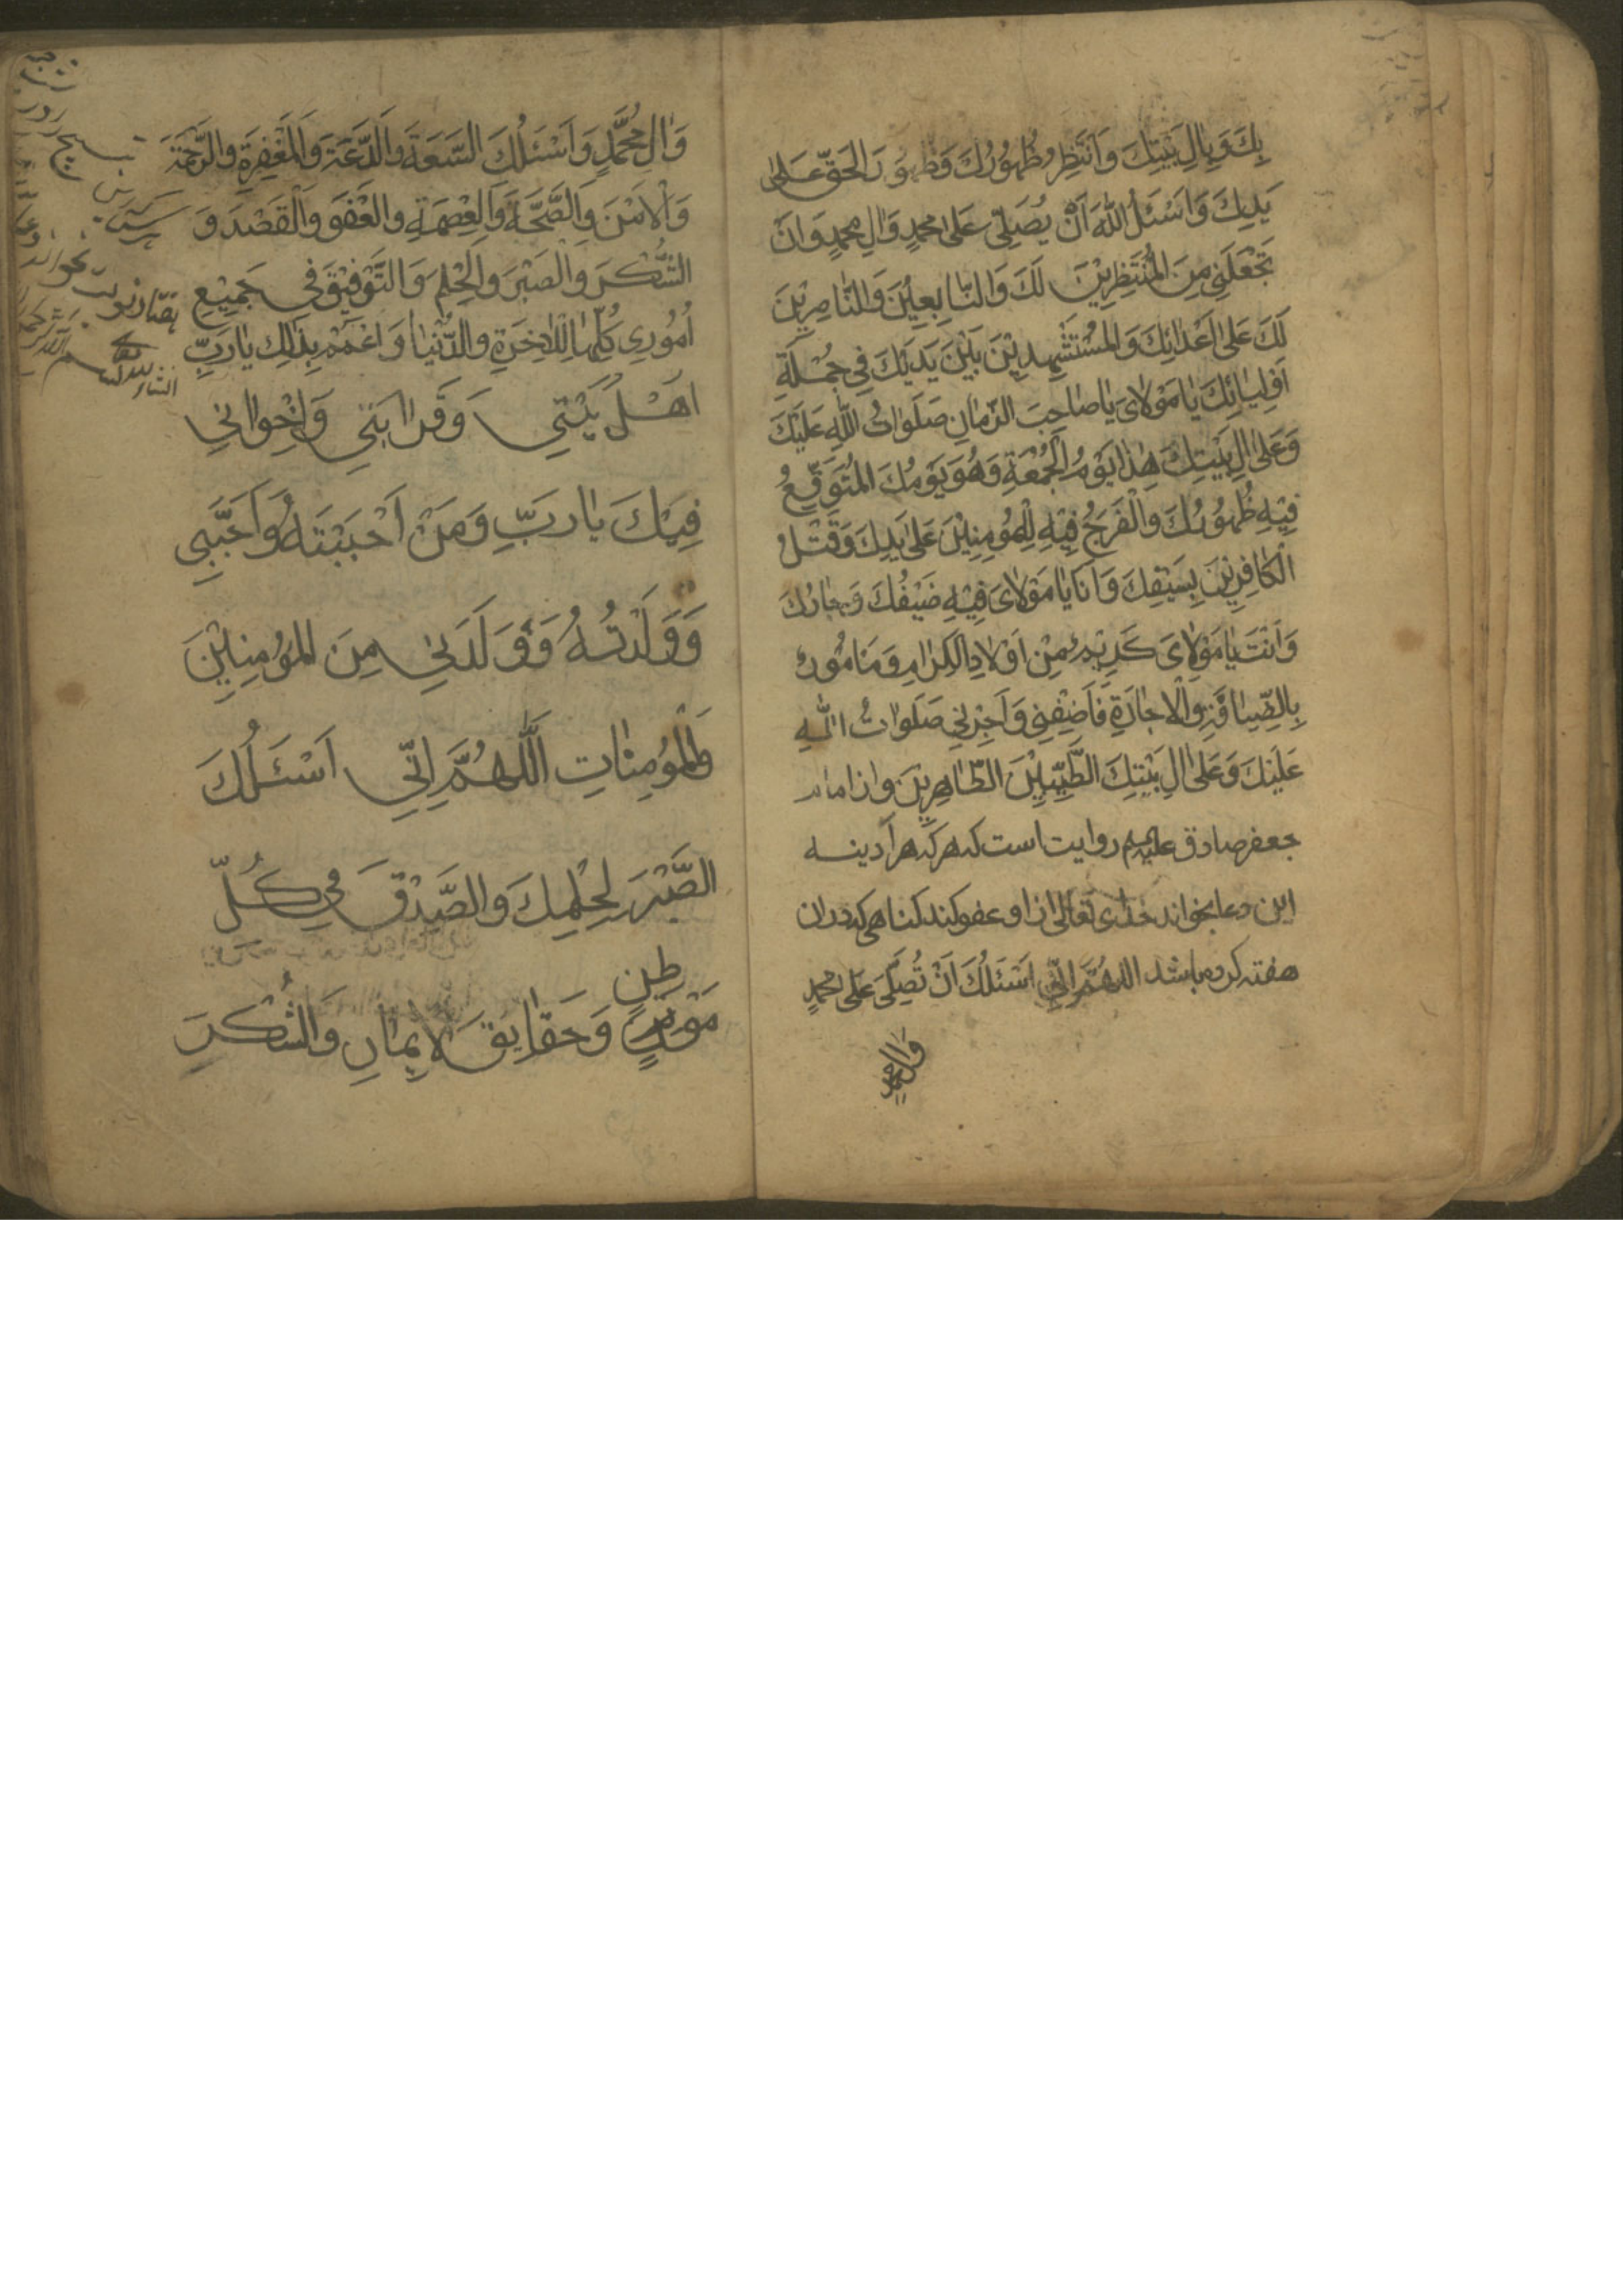 بِكَ وَبِاٰلِ بَيْتِكَ وَاَنْتَظِرُ ظُهُوْرَكَ وَظُهُوْرَ الْحَقِّ عَلٰى
يَدِكَ وَاَسْئَلُ اللّٰهَ اَنْ يُصَلِّىَ عَلٰى مُحَمَّدٍ وَاٰلِ مُحَمَّدٍ وَاَنْ
تَجْعَلَنِىْ مِنَ الْمُنْتَظِرِيْنَ لَكَ وَالتّٰابِعِيْنَ وَالنّٰاصِرِيْنَ
لَكَ عَلٰى اَعْدٰائِكَ وَالْمُسْتَشْهِدِيْنَ بَيْنَ يَدَيْكَ فِىْ جُمْلَةِ
اَوْلِيٰائِكَ يٰا مَوْلٰاىَ يٰا صٰاحِبَ الزَّمٰانِ صَلَوٰاتُ اللّٰهِ عَلَيْكَ
وَعَلٰى اٰلِ بَيْتِكَ هٰذٰا يَوْمُ الْجُمُعَةِ وَهُوَ يَوْمُكَ الْمُتَوَقَّعُ
فِيْهِ ظُهُوْرُكَ وَالْفَرَجُ فِيْهِ لِلْمُؤْمِنِيْنَ عَلٰى يَدِكَ وَقَتْلُ
الْكٰافِرِيْنَ بِسَيْفِكَ وَاَنَا يٰا مَوْلٰاىَ فِيْهِ ضَيْفُكَ وَجٰارُكَ
وَاَنْتَ يٰا مَوْلٰاىَ كَرِيْمٌ مِنْ اَوْلٰادِ الْكِرٰامِ وَمَامُوْرٌ
بِالضِّيٰافَةِ وَالْاِجٰارَةِ فَاَضِفْنِىْ وَاَجِرْنِىْ صَلَوٰاتُ اللّٰهِ
عَلَيْكَ وَعَلٰى اٰلِ بَيْتِكَ الطَّيِّبِيْنَ الطّٰاهِرِيْنَ و از امام
جعفر صادق عليه‌السلم روايت است كه هر كه هر آدينه
اين دعا بخواند خداى تعالى از او عفو كند گناهى كه در ان
هفته كرده باشد اللّٰهُمَّ اِنِّىْ اَسْئَلُكَ اَنْ تُصَلِّىَ عَلٰى مُحَمَّدٍ
وَاٰلِ مُحَمَّدٍ
وَاٰلِ مُحَمَّدٍ وَاَسْئَلُكَ السَّعَةَ وَالدَّعَةَ وَالْمَغْفِرَةَ وَالرَّحْمَةَ
وَالْاَمْنَ وَالصِّحَّةَ وَالْعِصْمَةَ وَالْعَفْوَ وَالْقَصْدَ وَ
الشُّكْرَ وَالصَّبْرَ وَالْحِلْمَ وَالتَّوْفِيْقَ فِىْ جَمِيْعِ
اُمُوْرِى كُلِّهٰا لِلْاٰخِرَةِ وَالدُّنْيٰا وَاعْمُمْ بِذٰلِكَ يٰا رَبِّ
اَهْلَ بَيْتِىْ وَقَرٰابَتِىْ وَاِخْوٰانِىْ
فِيْكَ يٰا رَبِّ وَمَنْ اَحْبَبْتَهُ وَاَحَبَّنِى
وَوَلَدْتُهُ وَوَلَدَنِىْ مِنَ الْمُؤْمِنِيْنَ
وَالْمُؤْمِنٰاتِ اَللّٰهُمَّ اِنِّىْ اَسْئَلُكَ
الصَّبْرَ لِحُكْمِكَ وَالصِّدْقَ فِىْ كُلِّ
مَوْطِنٍ وَحَقٰايِقَ الْاِيْمٰانِ وَالشُّكْرَ
تسبيح